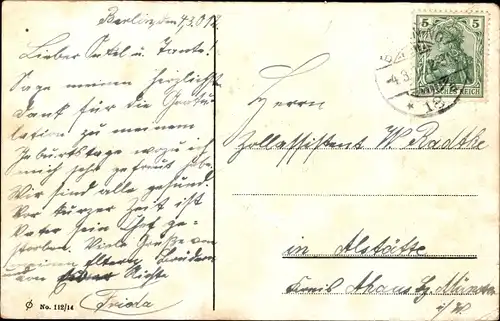 Berlin, den 4.3.
Lieber Onkel u. Tante!
Sage meinen herzlichsten
Dank für die Gratu-
lation! zu meinem
Geburtstage wozu ich
mich sehr gefreut habe.
Wir sind alle gesund.
Vor kurzer Zeit ist
Vater sein Chef ge-
storben. Viele Grüße von
meinen Eltern
Nichte
Frieda
No. 112/14
5 5
DEUTSCHES REICH
4.3.
* 12
Herrn
Zollassistent W. Radtke
in Alstätte
Kreis Ahaus Bz. Münster
i/W.